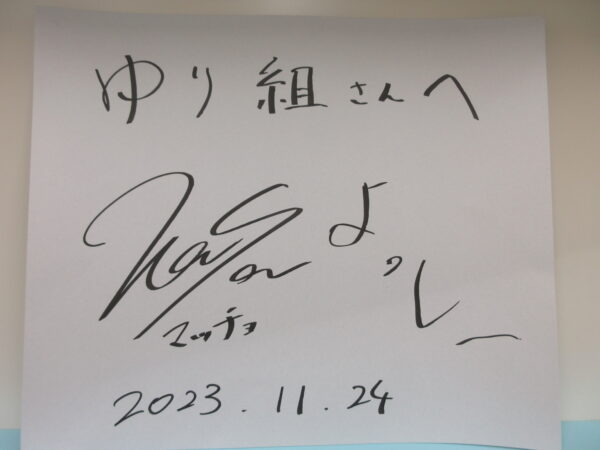 ゆり組さんへ
よっしー
マッチョ
2023.11.24